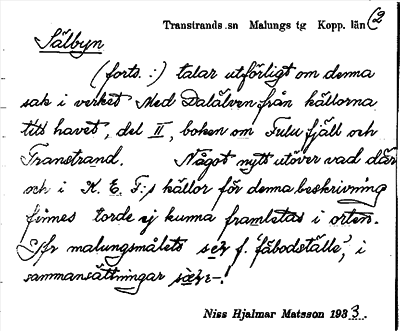 Transtrands .sn Malungs tg Kopp. län (2
Sälbyn
(forts. :) talar utförligt om denna
sak i verket Med Dalälven från källorna
till havet, del II, boken om Fulufjäll och
Transtrand. Något nytt utöver vad där
och i K. E. F:s källor för denna beskrivning
finnes torde ej kunna framletas i orten.
Jfr malungsmålets f. 'fäbodställe', i
sammansättningar
Niss Hjalmar Matsson 1933.